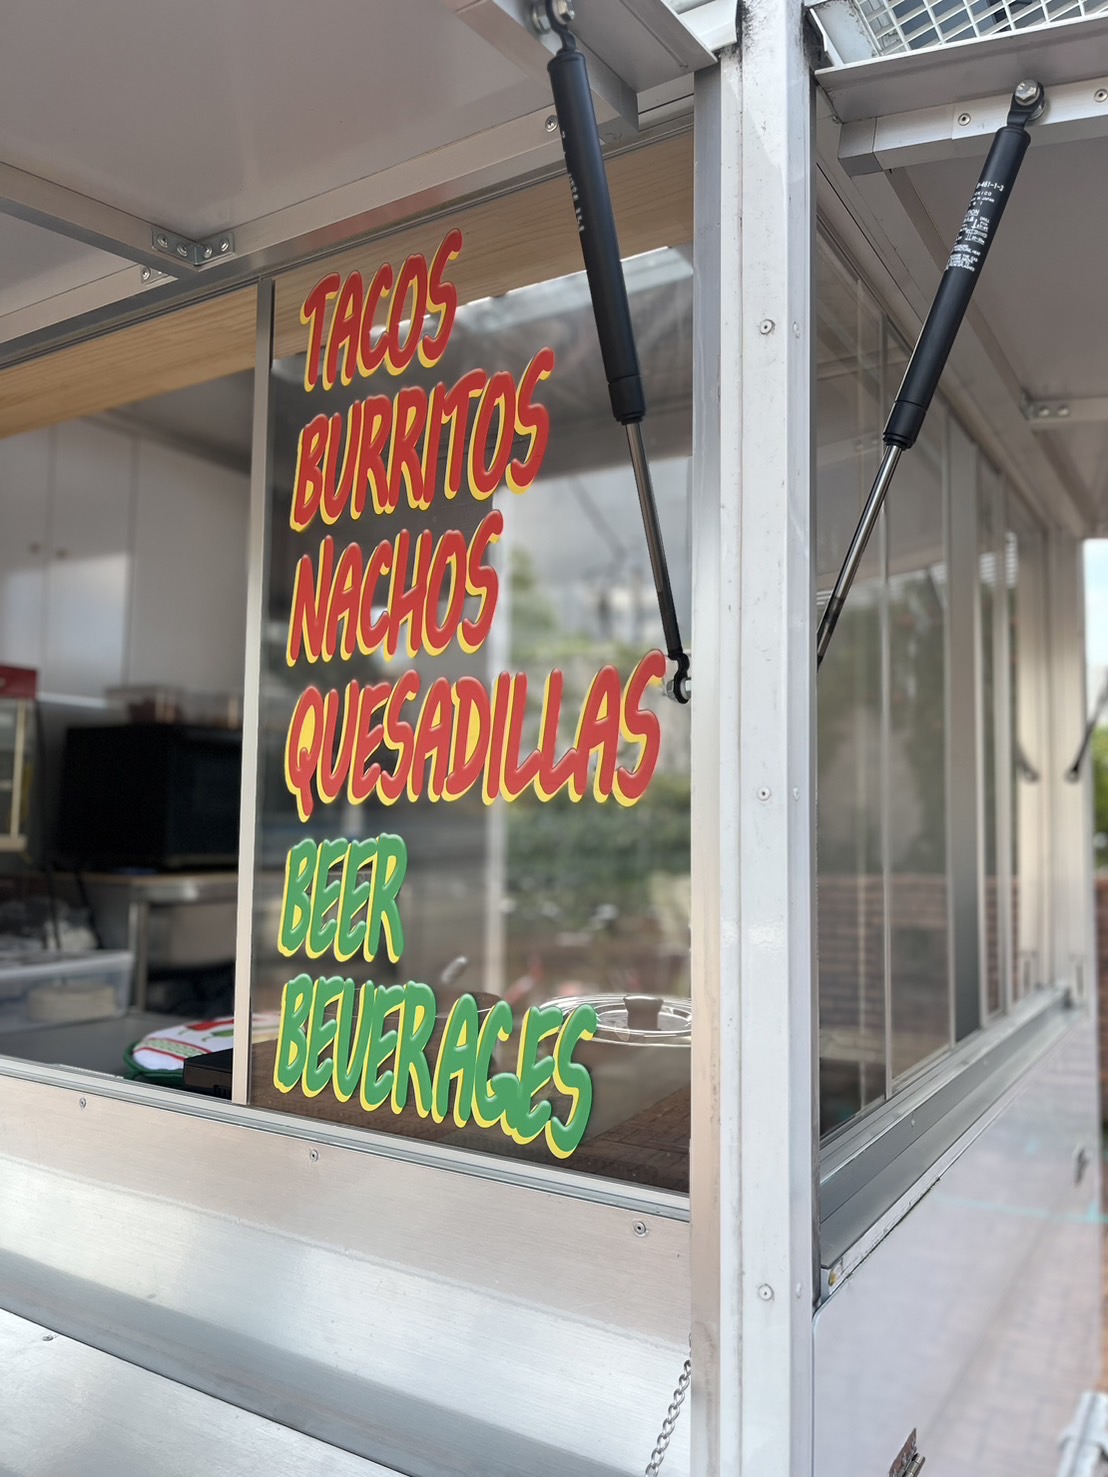 TACOS
BURRITOS
NACHOS
QUESADILLAS
BEER
BEVERAGES